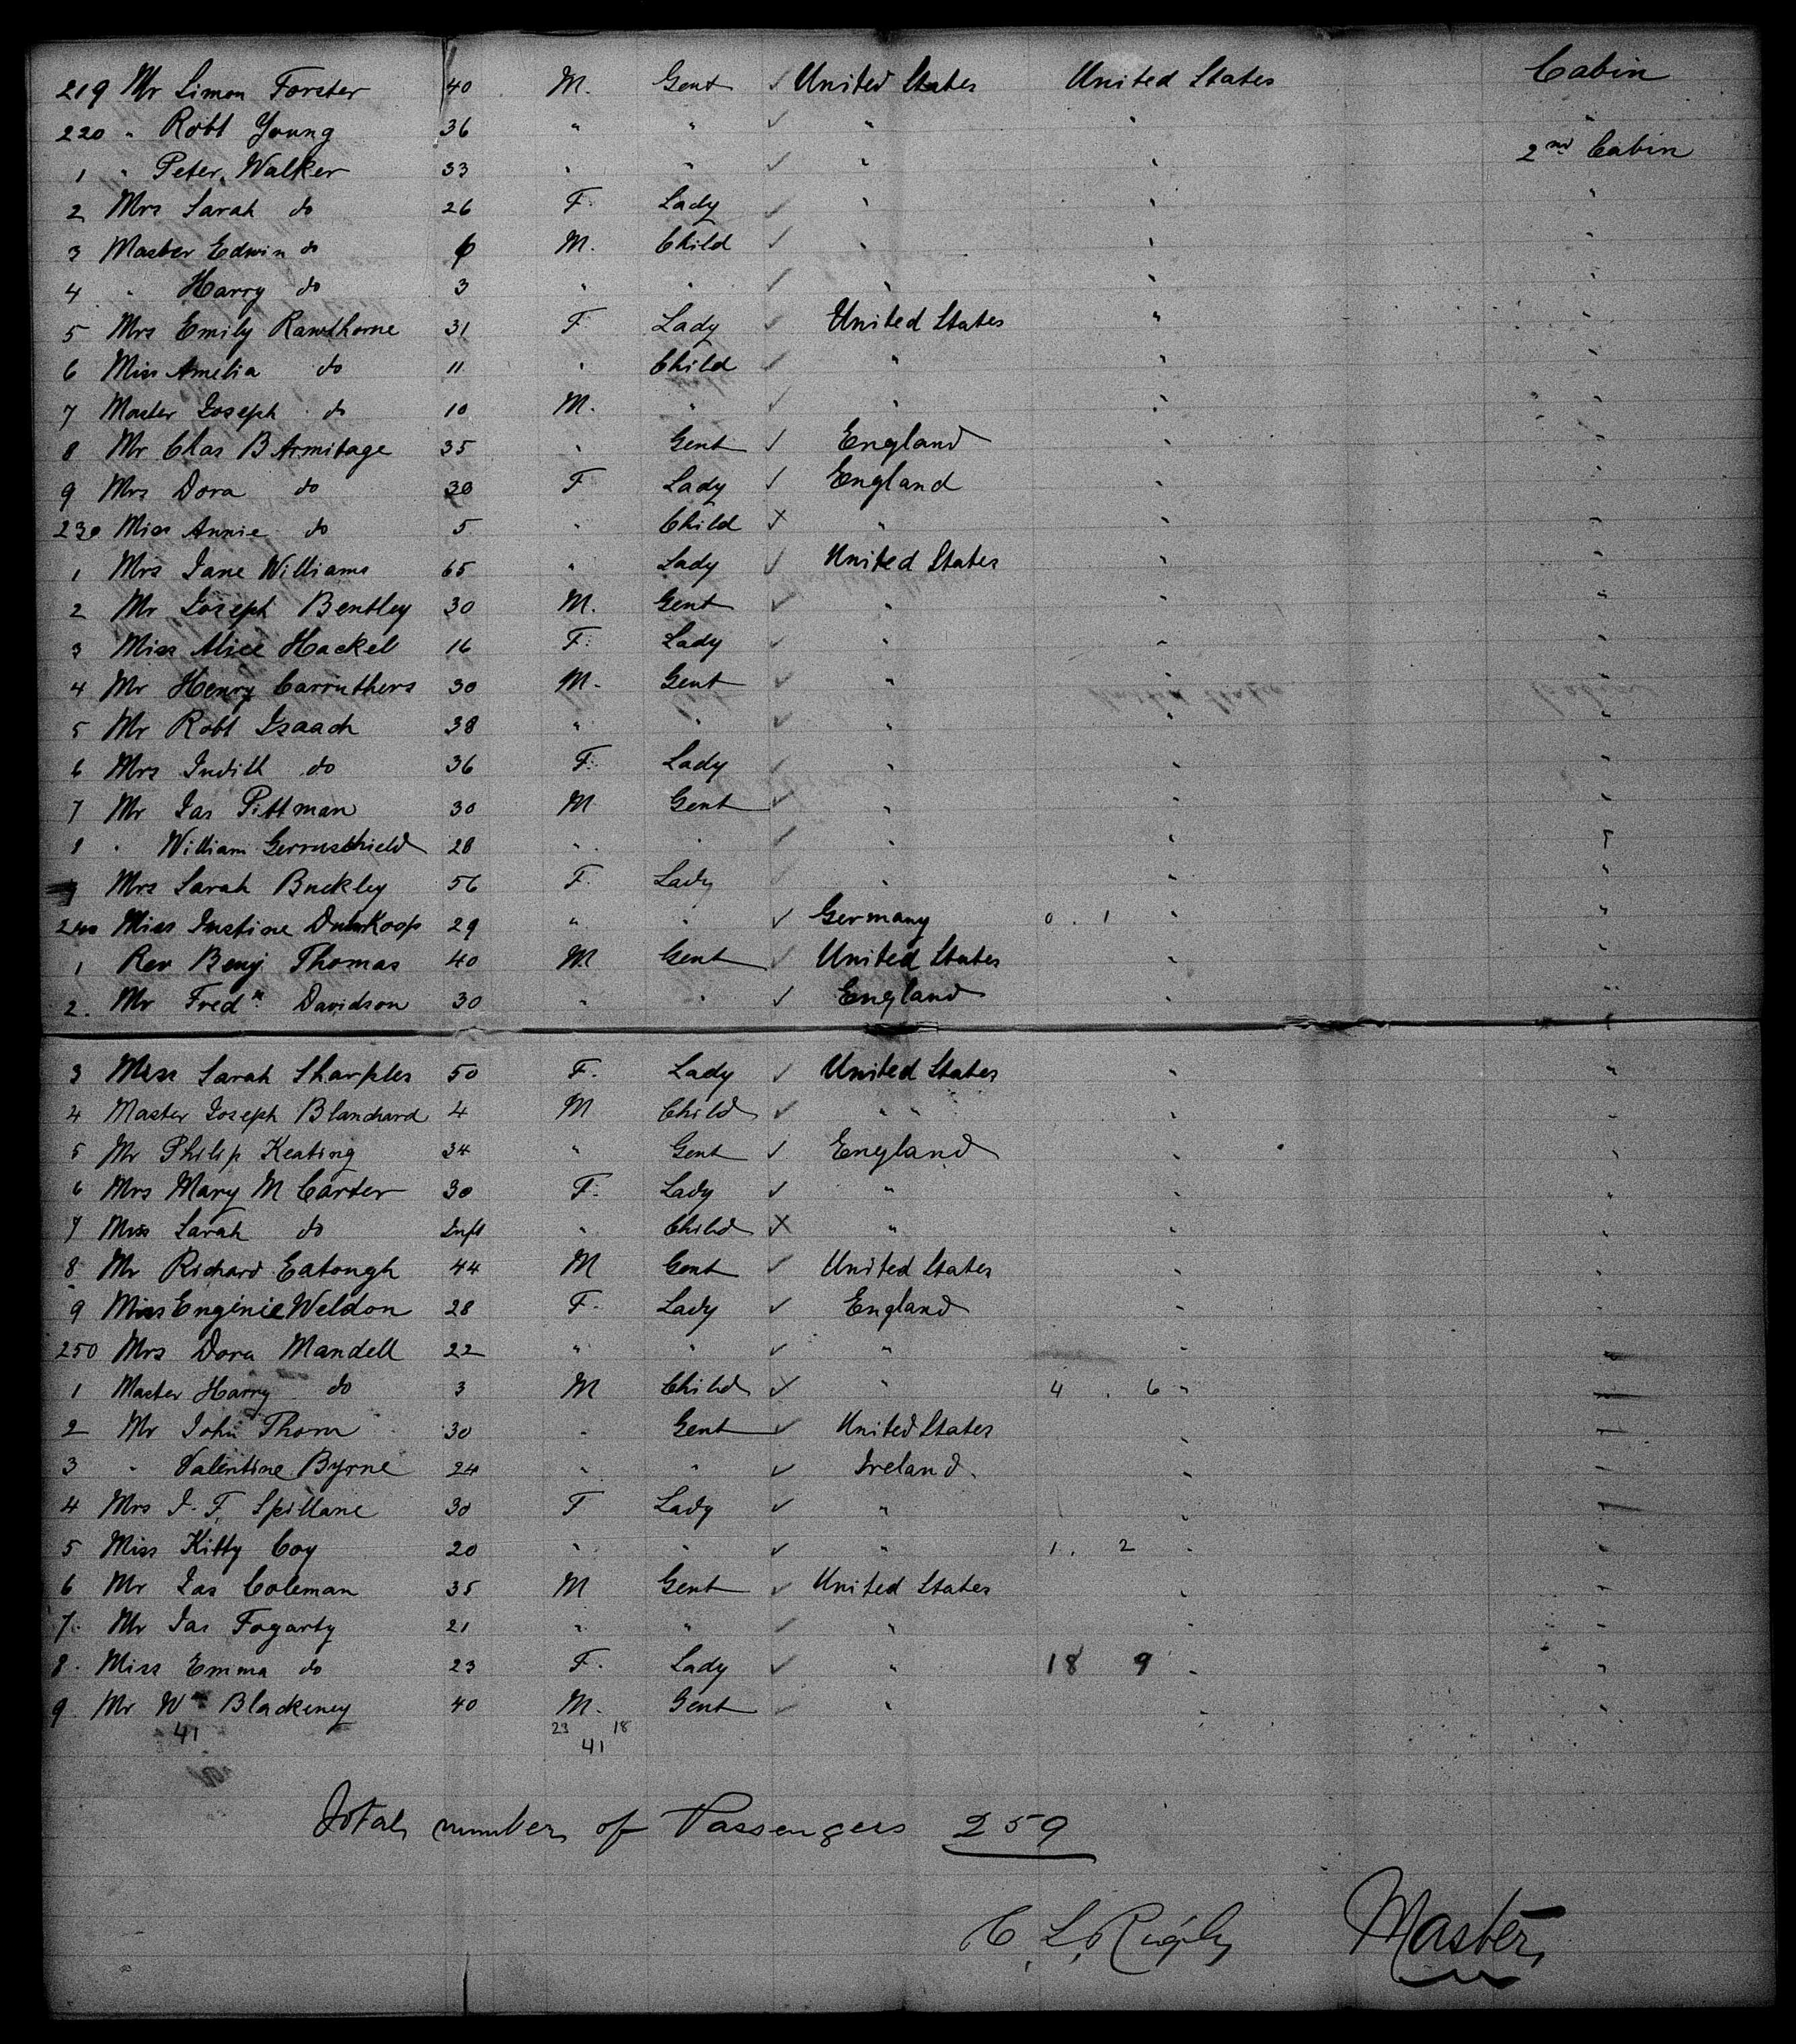 219 Mr Simon Forster 40 M. Gent ✓ United States United States Cabin
220 " Robt Young 36 " " ✓ " " "
1 " Peter Walker 33 " " ✓ " " 2nd Cabin
2 Mrs Sarah do 26 F. Lady ✓ " " "
3 Master Edwin do 6 M. Child ✓ " " "
4 " Harry do 3 " " ✓ " " "
5 Mrs Emily Rawthorne 31 F. Lady ✓ United States " "
6 Miss Amelia do 11 " Child ✓ " " "
7 Master Joseph do 10 M. " ✓ " " "
8 Mr Chas B Armitage 35 " Gent ✓ England " "
9 Mrs Dora do 30 F Lady ✓ England " "
230 Miss Annie do 5 " Child X " " "
1 Mrs Jane Williams 65 " Lady ✓ United States " "
2 Mr Joseph Bentley 30 M. Gent ✓ " " "
3 Miss Alice Hackel 16 F. Lady ✓ " " "
4 Mr Henry Carruthers 30 M. Gent ✓ " " "
5 Mr Robt Isaach 38 " " ✓ " " "
6 Mrs Judith do 36 F. Lady ✓ " " "
7 Mr Jas Pittman 30 M Gent ✓ " " "
8 " William 28 " " ✓ " " "
9 Mrs Sarah Buckley 56 F. Lady ✓ " " "
240 Miss Justine 29 " " ✓ Germany 0 . 1 " "
1 Rev Benj Thomas 40 M Gent ✓ United States " "
2. Mr Fredk Davidson 30 " " ✓ England " "
3 Miss Sarah Sharples 50 F. Lady ✓ United States " "
4 Master Joseph Blanchard 4 M Child ✓ " " " "
5 Mr Philip Keating 34 " Gent ✓ England " "
6 Mrs Mary M Carter 30 F. Lady ✓ " " "
7 Miss Sarah do Inft " Child X " " "
8 Mr Richard Eatough 44 M Gent ✓ United States " "
9 Miss Engenie Weldon 28 F. Lady ✓ England " "
250 Mrs Dora Mandell 22 " " ✓ " " "
1 Master Harry do 3 M Child X " 4 . 6 " "
2 Mr John Thorn 30 " Gent ✓ United States " "
3 " Valentine Byrne 24 " " ✓ Ireland. " "
4 Mrs J. F. Spillane 30 F Lady ✓ " " "
5 Miss Kitty Coy 20 " " ✓ " 1. 2 " "
6 Mr Jas Coleman 35 M Gent ✓ United States " "
7. Mr Jas Fogarty 21 " " ✓ " " "
8. Miss Emma do 23 F. Lady ✓ " 18 9 " "
9 Mr Wm Blackeney 40 M. Gent ✓ " " "
41 23 18
41
Total number of Passengers 259
C. L. Rigby Master,